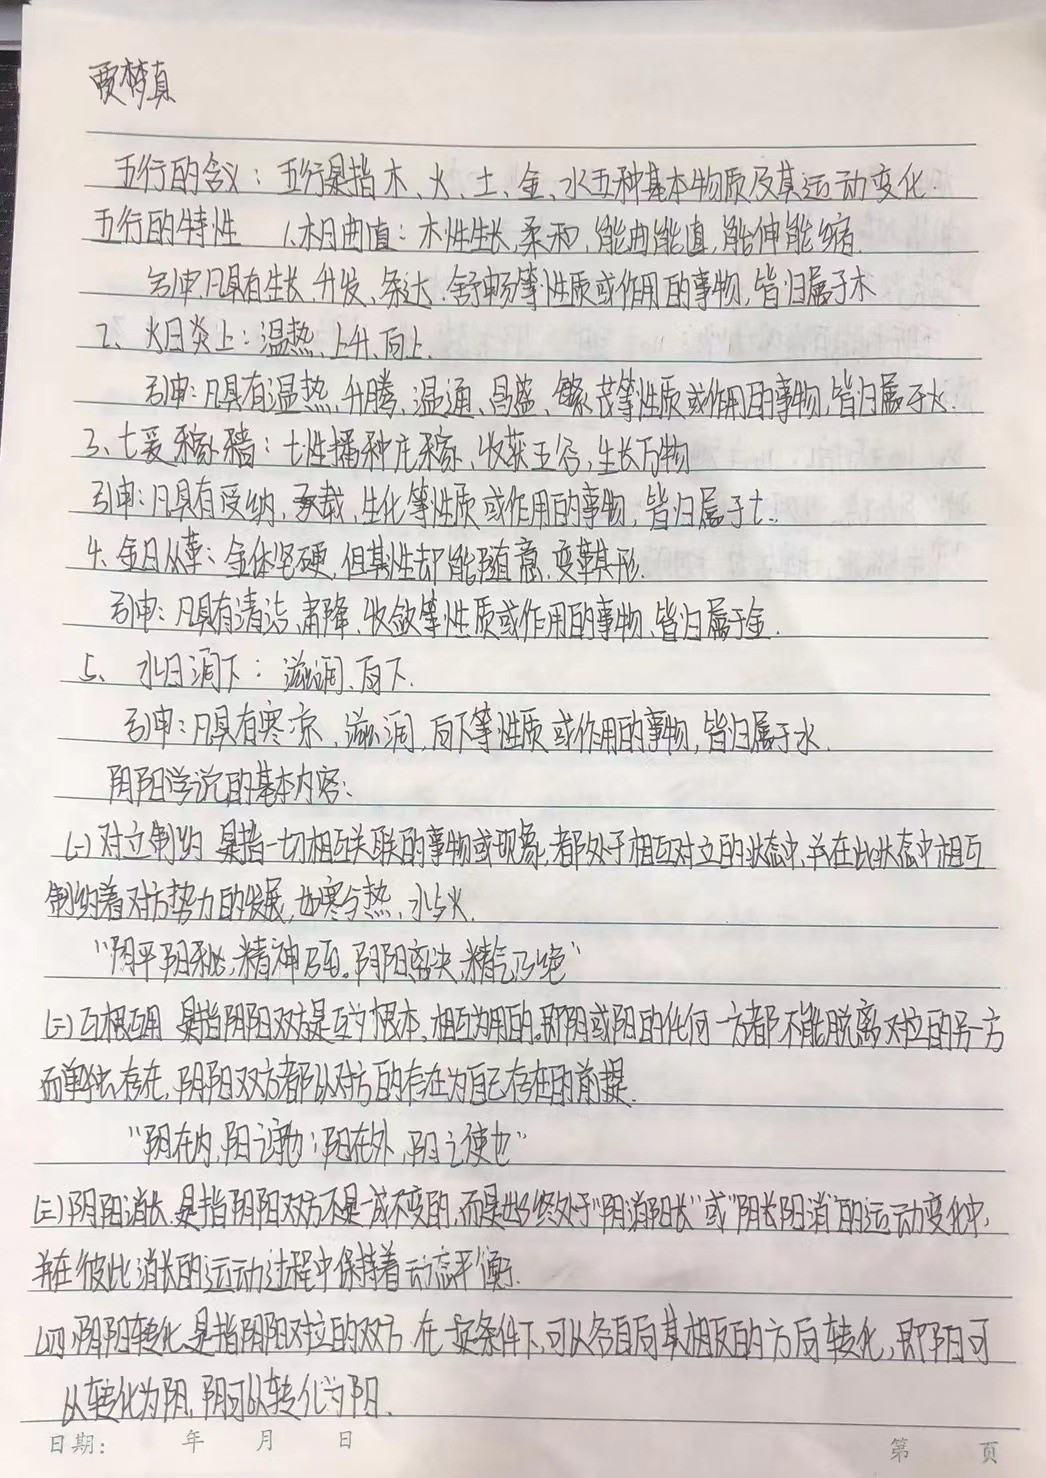 贾梦真
五行的含义：五行是指木、火、土、金、水五种基本物质及其运动变化.
五行的特性 1.木曰曲直：木性生长,柔和,能曲能直,能伸能缩.
引申:凡具有生长、升发、条达、舒畅等性质或作用的事物,皆归属于木
2、火曰炎上：温热、上升、向上.
引申:凡具有温热、升腾、温通、昌盛、繁茂等性质或作用的事物,皆归属于火.
3、土爰稼穑：土性播种庄稼、收获五谷,生长万物
引申:凡具有受纳、承载、生化等性质或作用的事物,皆归属于土.
4、金曰从革：金体坚硬,但其性却能随意变革其形.
引申:凡具有清洁、肃降、收敛等性质或作用的事物,皆归属于金.
5、水曰润下：滋润、向下.
引申:凡具有寒凉、滋润、向下等性质或作用的事物,皆归属于水.
阴阳学说的基本内容:
(一)对立制约 是指一切相互关联的事物或现象,都处于相互对立的状态中,并在此状态中相互
制约着对方势力的发展,如寒与热,水与火.
“阴平阳秘,精神乃至。阴阳离决,精气乃绝”
(二)互根互用 是指阴阳双方是互为根本,相互为用的。即阴或阳的任何一方都不能脱离对立的另一方
而单独存在,阴阳双方都以对方的存在为自己存在的前提.
“阴在内,阳之守也;阳在外,阴之使也”
(三)阴阳消长,是指阴阳双方不是一成不变的,而是始终处于“阴消阳长”或“阴长阳消”的运动变化中,
并在彼此消长的运动过程中保持着动态平衡.
(四)阴阳转化,是指阴阳对立的双方 在一定条件下,可以各自向其相反的方向转化,即阳可
以转化为阴,阴可以转化为阳.
日期： 年 月 日 第 页